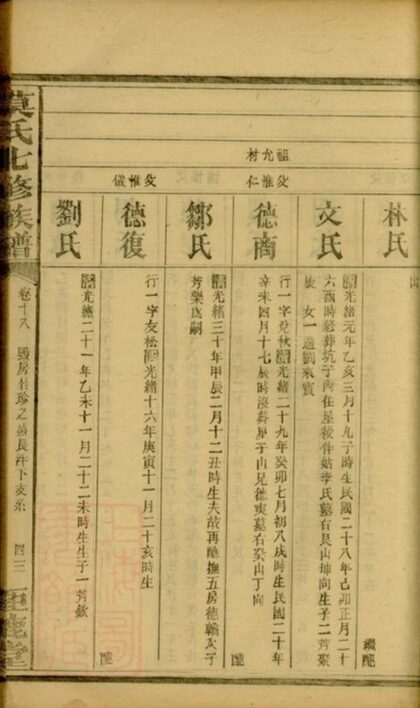 祖允村
父惟仁
父惟儀
林氏
文氏
光緒元年乙亥三月十九子時生民國二十八年己卯正月二十
六酉時葬坑子丙住屋後伴姑李氏墓右艮山坤向生子二芳聚
女一適劉來賓
德商
行一字光緒二十九年癸卯七月初八戌時生民國二十年
辛未四月十七辰時沒葬星子山兄德爽墓右癸山丁向
鄒氏
光緒三十年甲辰二月十二丑時生夫故再醮撫五房德翰次子
芳樂為嗣
德復
行一字友松光緒十六年庚寅十一月二十亥時生
劉氏
光緒二十一年乙未十一月二十二未時生生子一芳欽
莫氏七修族譜
卷十八
四三